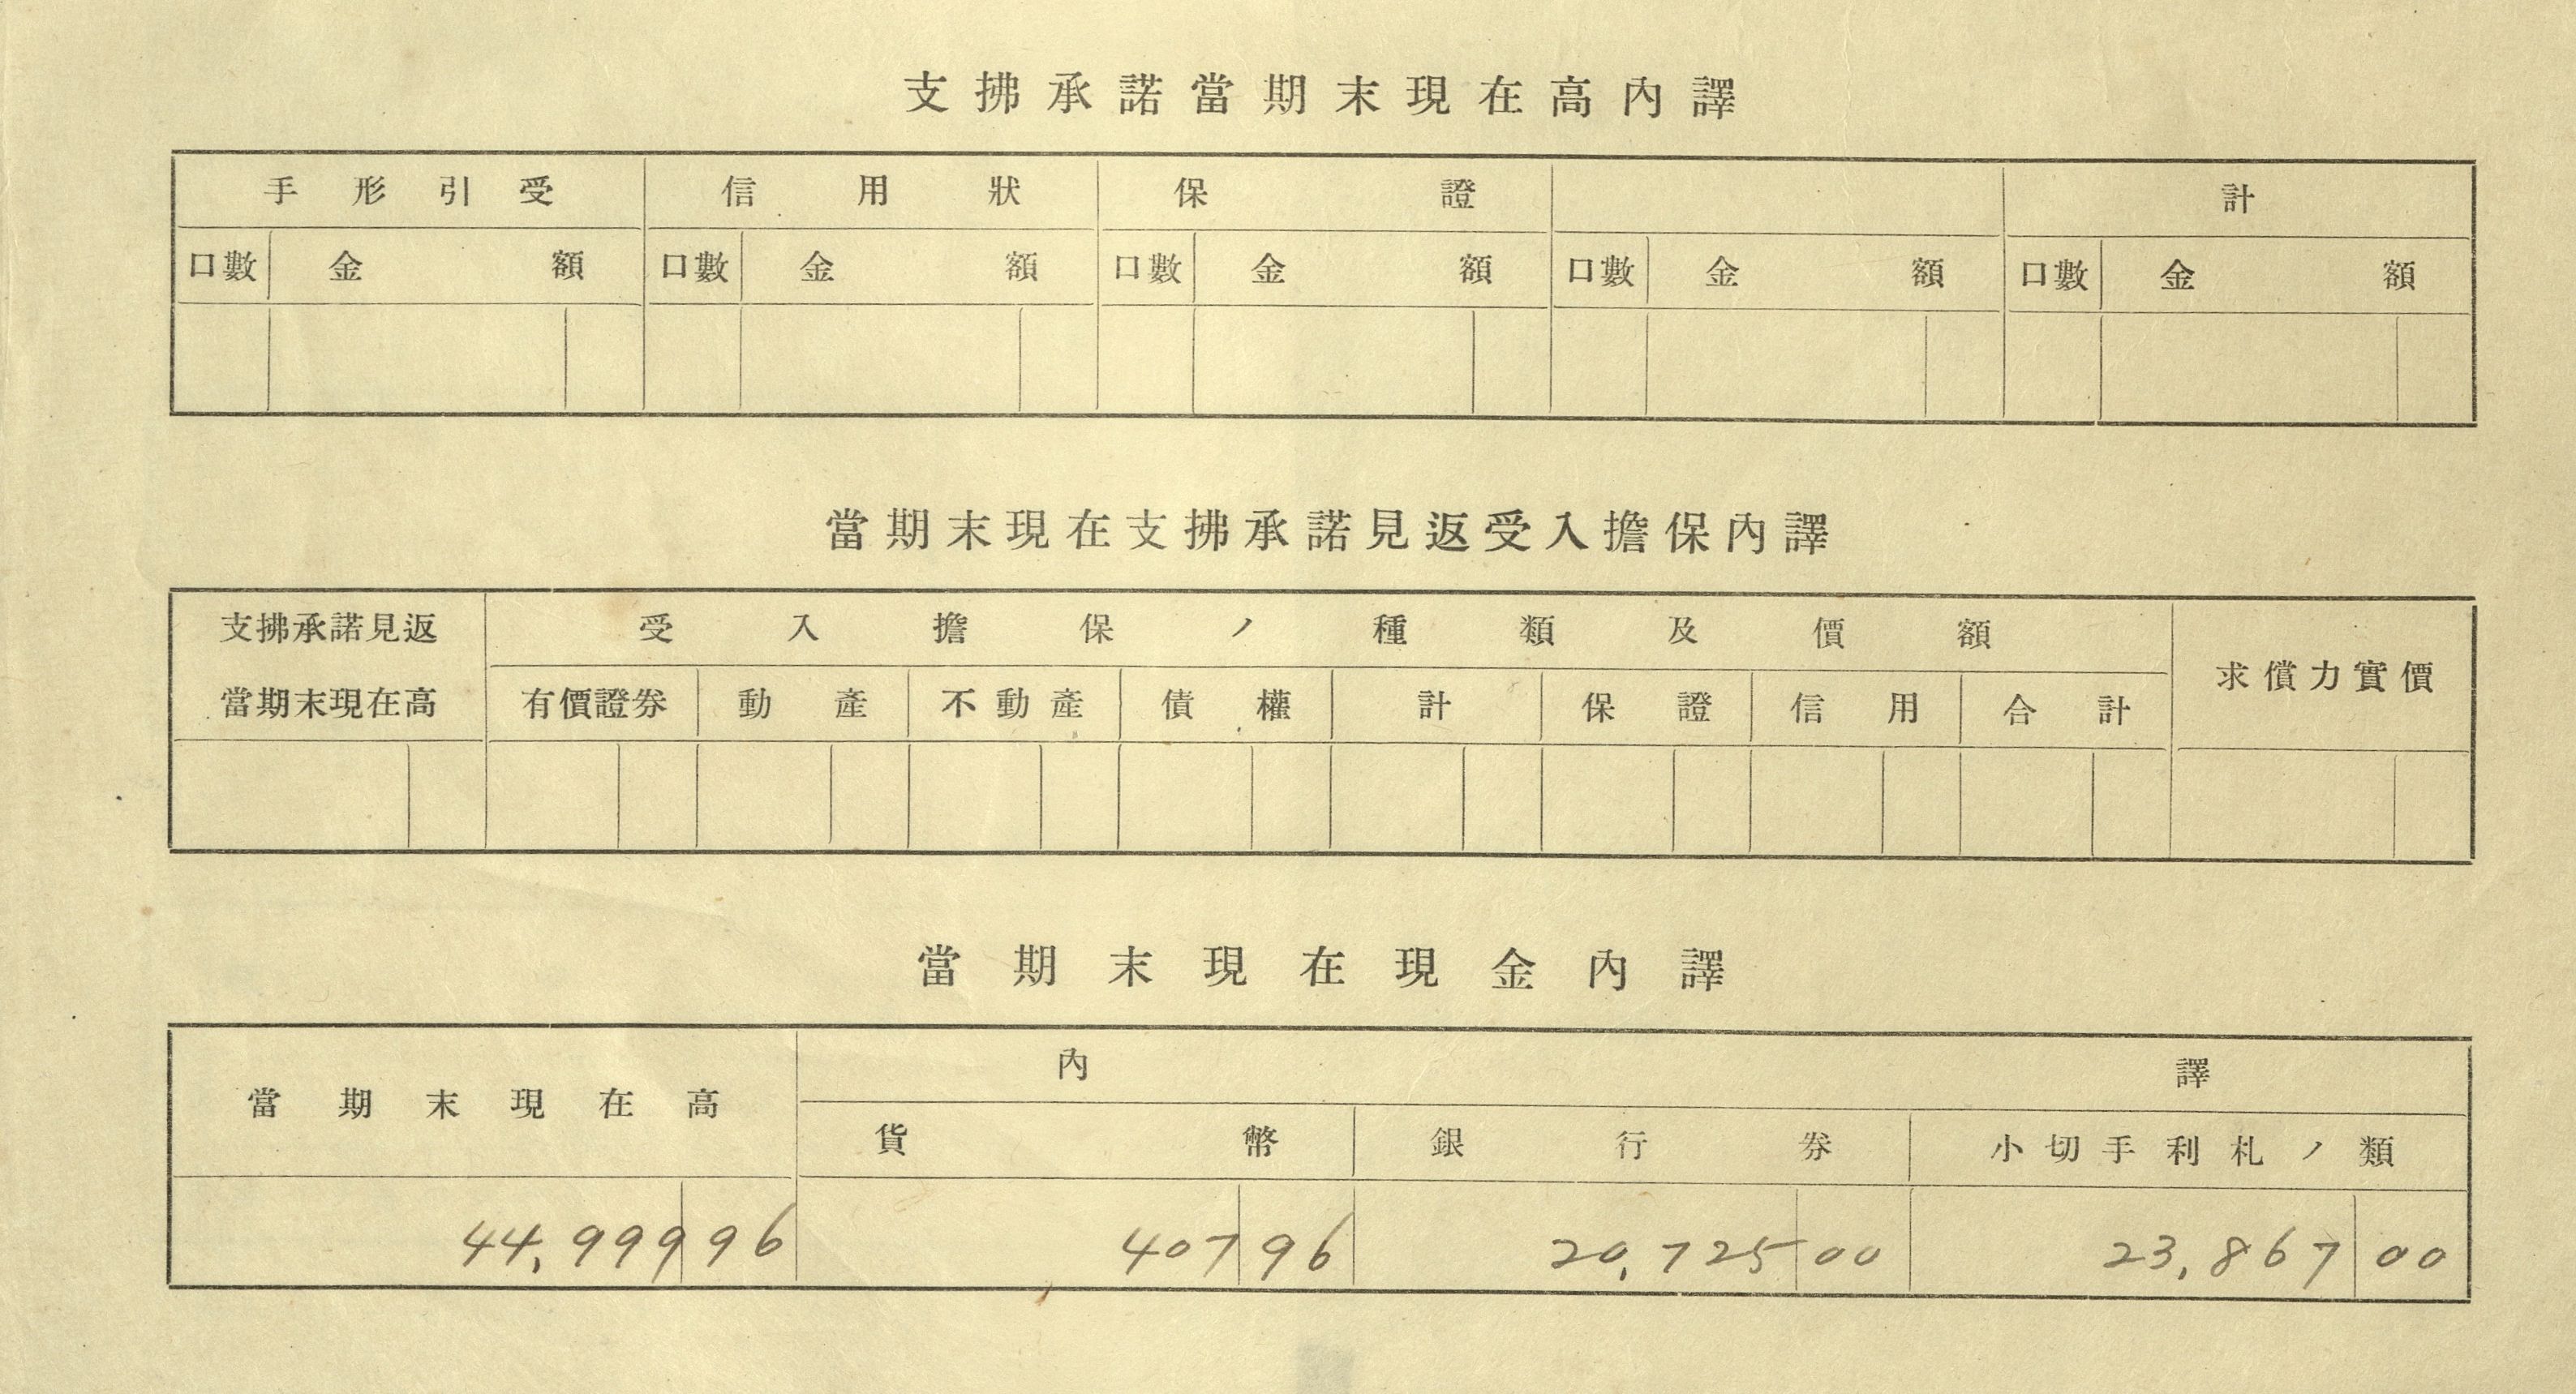 支拂承諾當期末現在高內譯
手形引受 信用狀 保證 計
口數 金額 口數 金額 口數 金額 口數 金額 口數 金額
當期末現在支拂承諾見返受入擔保內譯
支拂承諾見返當期末現在高 受入擔保ノ種類及價額 求償力實價
有價證券 動產 不動產 債權 計 保證 信用 合計
當期末現在現金內譯
當期末現在高 內譯
貨幣 銀行券 小切手利札ノ類
44,999 96 407 96 20,725 00 23,867 00